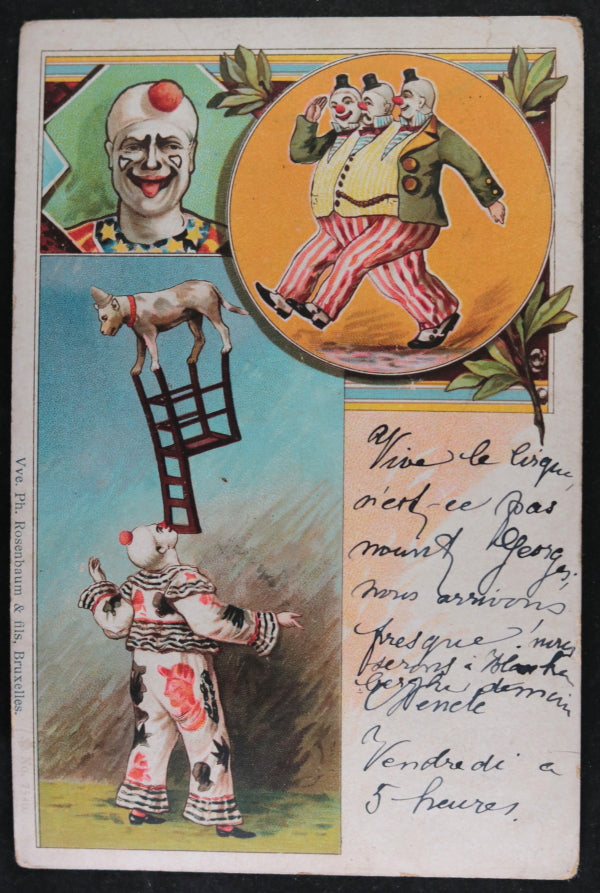 Vive le cirque,
n'est-ce pas
Georges,
nous arrivons
presque! nous
serons à
demain
Vendredi à
5 heures.
Vve. Ph. Rosenbaum & fils, Bruxelles.